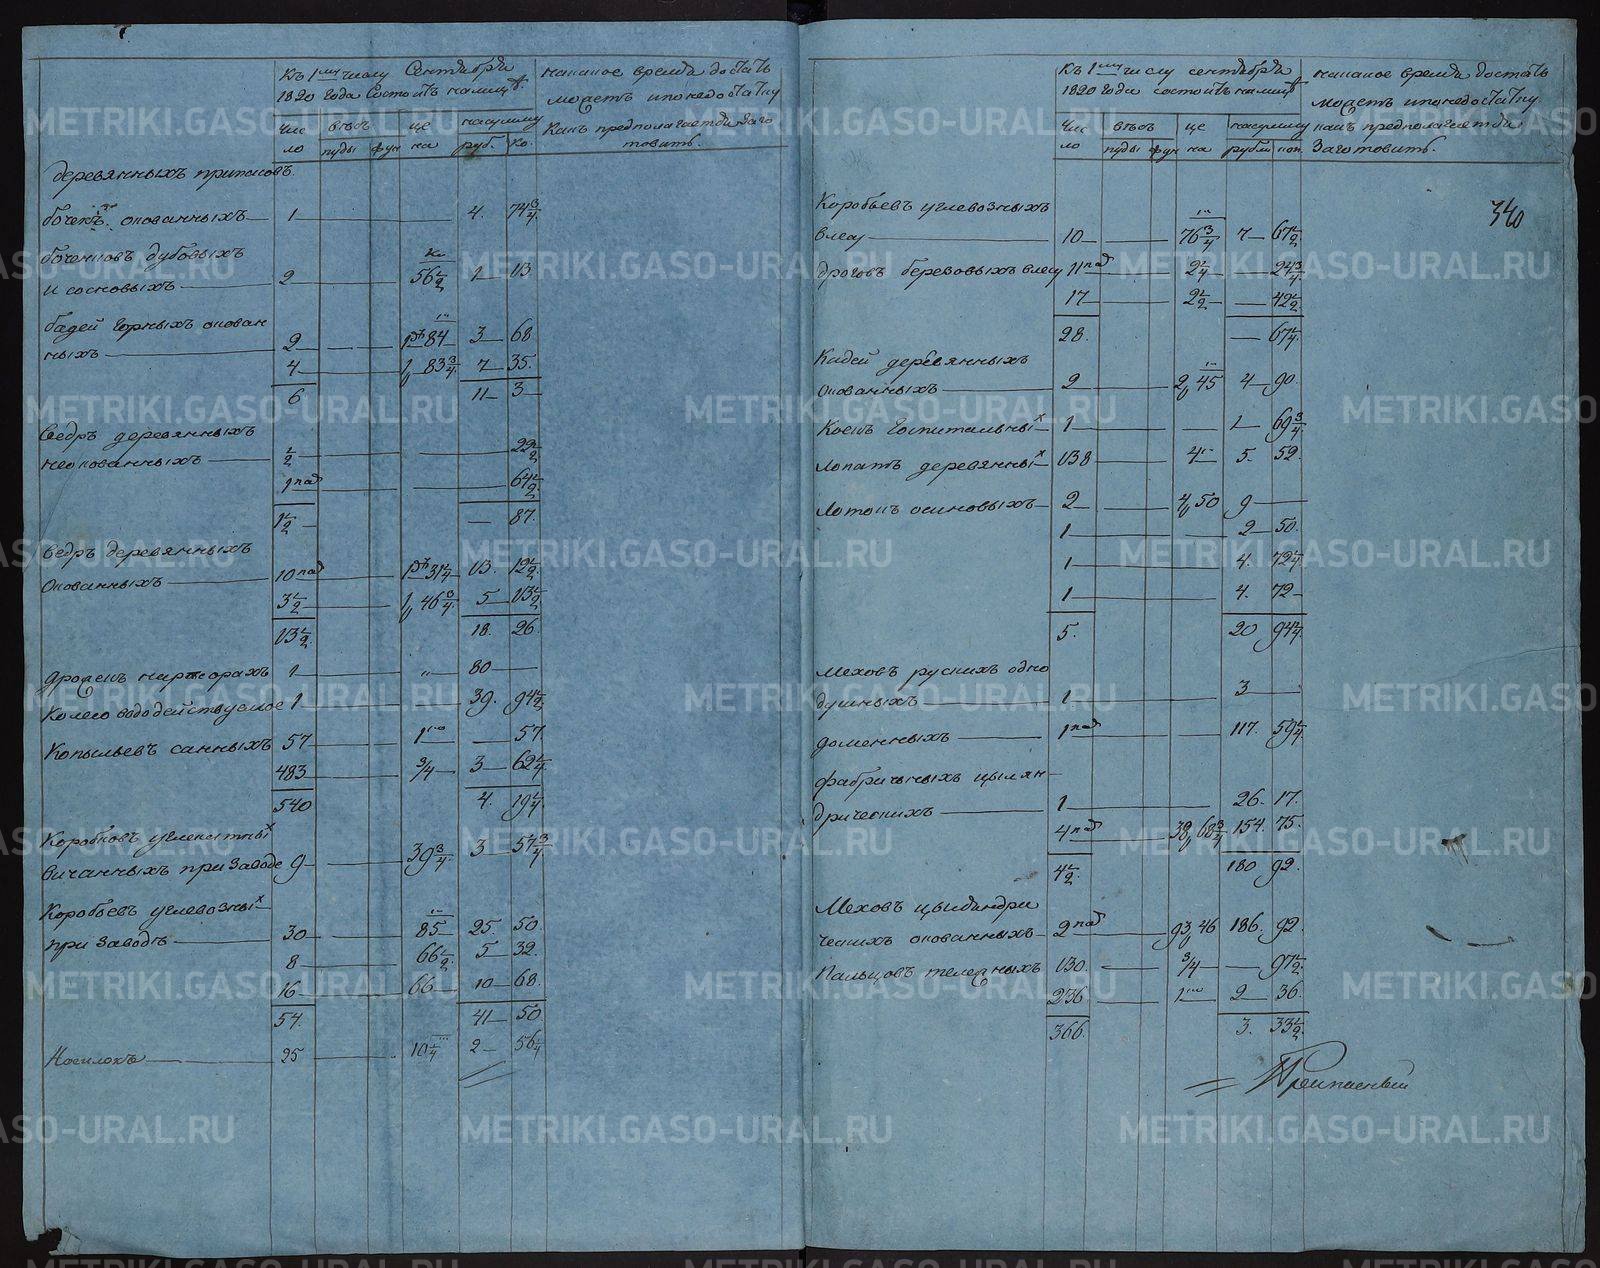 Къ 1му числу Сентября
1820 года Состоитъ налицо
на какое время достать
можетъ и по недостатку
какъ предполагается заго
товить.
Чис
ло
вѣсъ
пуды фун
це
на
на сумму
руб. ко.
деревянныхъ припасовъ.
бочекъ окованныхъ 1 4. 74 3/4
боченковъ дубовыхъ
и сосновыхъ 2 56 1/2 1 13
бадей горныхъ окован
ныхъ 2 1 84 3 68
4 1 83 3/4 7 35.
6 11 3
ведръ деревянныхъ
неокованныхъ 1/2 22 1/2
1 64 1/2
1 1/2 87.
ведръ деревянныхъ
окованныхъ 10 1 31 1/4 13. 12 1/2
3 1/2 1 46 3/4 5 13 1/2
13 1/2 18. 26
1 80
Колесо вододействуемое 1 39. 94 1/2
Копыльевъ санныхъ 57 1 57
483 3/4 3 62 1/4
540 4. 19 1/4
Коробковъ
при Заводе 9 39 3/4 3 57 3/4
Коробьевъ углевозныхъ
при Заводѣ 30 85 25. 50
8 66 1/2 5 32.
16 66 10 68.
54. 41 50
Носилокъ 25 10 1/4 2 56 1/4
Къ 1му числу сентября
1820 года состоитъ налицо
на какое время достать
можетъ и по недостатку
какъ предполагается
Заготовить.
Чис
ло
вѣсъ
пуды фун
це
на
на сумму
рубли коп.
340
Коробьевъ углевозныхъ
в лесу 10 76 3/4 7 67 1/2
дроговъ березовыхъ в лесу 11 2 1/4 24 3/4
17 2 1/2 42 1/2
28. 67 1/4
Кадей деревянныхъ
окованныхъ 2 2 45 4 90
Коекъ Госпитальныхъ 1 1 69 3/4
Лопатъ деревянныхъ 138 4 5. 52.
Лотокъ осиновыхъ 2 4 50 9
1 2 50.
1 4. 72 1/4
1 4. 72
5. 20 94 1/4
Меховъ руских одно
душныхъ 1 3
доменныхъ 1 117. 59 1/4
фабричныхъ цылин
дрическихъ 1 26. 17.
4 38 68 3/4 154. 75.
4 1/2 180 92.
Меховъ цылиндри
ческихъ окованныхъ 2 93 46 186. 92.
Пальцовъ тележныхъ 130. 3/4 97 1/2
236 1 2 36.
366. 3. 33 1/2
METRIKI.GASO-URAL.RU